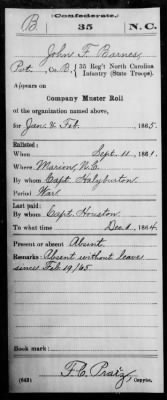 Confederate.
B. 35 N.C.
John F. Barnes
Pvt., Co. B, 35 Reg't North Carolina
Infantry (State Troops).
Appears on
Company Muster Roll
of the organization named above,
for Jan & Feb., 1865.
Enlisted:
When Sept. 11, 1861.
Where Marion, N.C.
By whom Capt Halyburton
Period War
Last paid:
By whom Capt. Houston
To what time Dec. 1, 1864.
Present or absent Absent
Remarks: Absent without leave
since Feb. 19/65
Book mark:
(642) F. C.
Copyist.